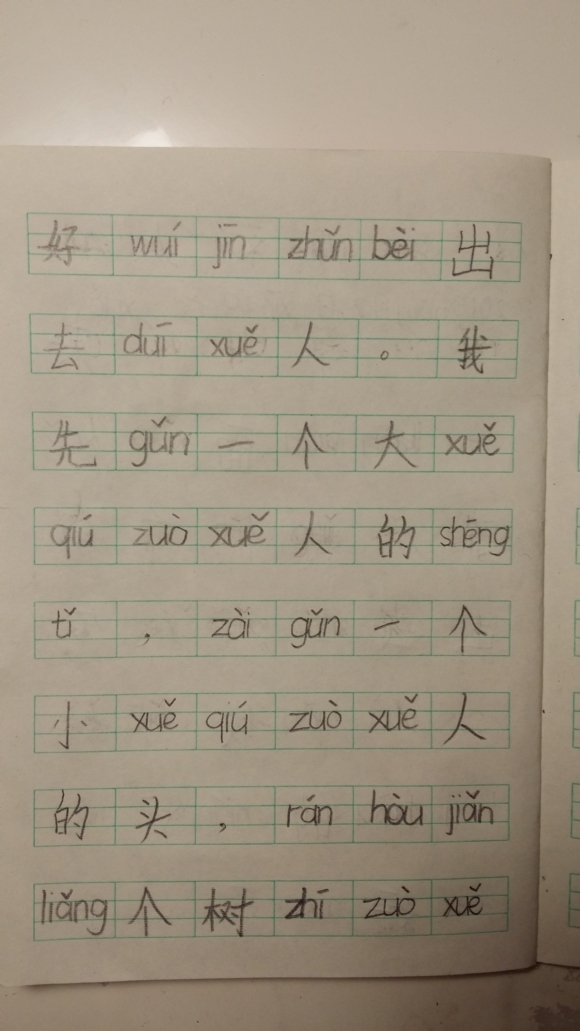 好 wuí jīn zhǔn bèi 出
去 duī xuě 人 。 我
先 gǔn 一 个 大 xuě
qiú zuò xuě 人 的 shēng
tǐ ， zài gǔn 一 个
小 xuě qiú zuò xuě 人
的 头 ， rán hòu jiǎn
liǎng 个 树 zhī zuò xuě